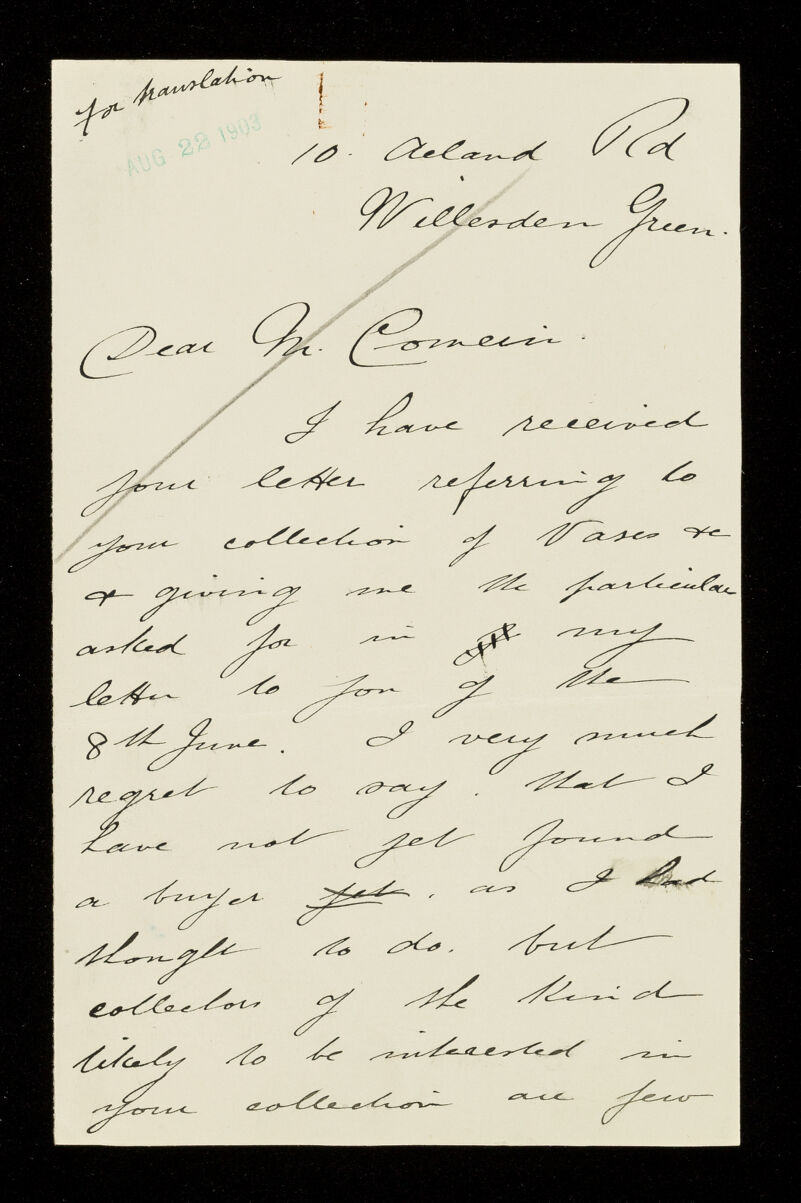 for translation
AUG 22 1903
10. Acland Rd
Willesden Green.
Dear M. Comein.
I have received
your letter referring to
your collection of Vases &c
& giving me the particulars
asked for in my
letter to you of the
8th June. I very much
regret to say. that I
have not yet found
a buyer yet, as I had
thought to do. but
collectors of the kind
likely to be interested in
your collection are few